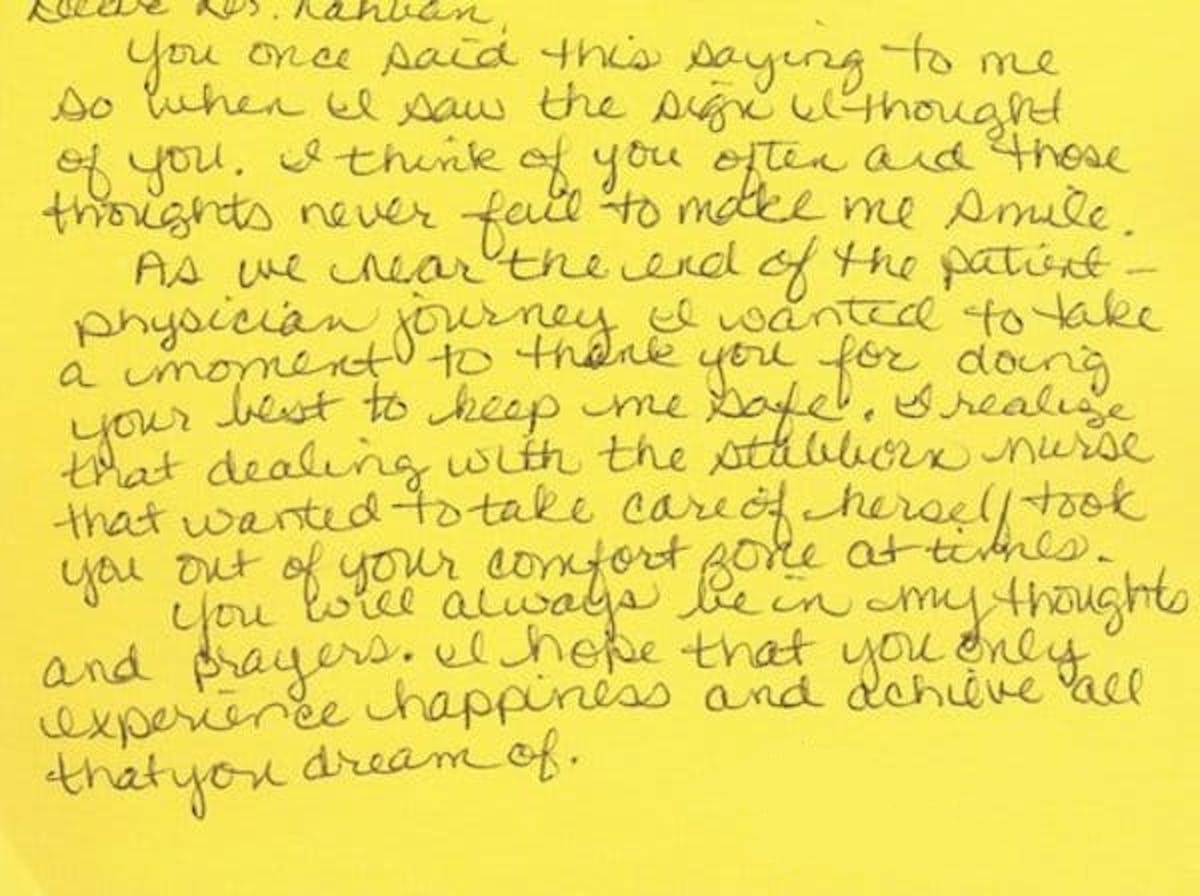 You once said this saying to me
so when I saw the sign I thought
of you. I think of you often and those
thoughts never fail to make me smile.
As we near the end of the patient-
physician journey I wanted to take
a moment to thank you for doing
your best to keep me safe. I realize
that dealing with the stubborn nurse
that wanted to take care of herself took
you out of your comfort zone at times.
You will always be in my thoughts
and prayers. I hope that you only
experience happiness and achieve all
that you dream of.